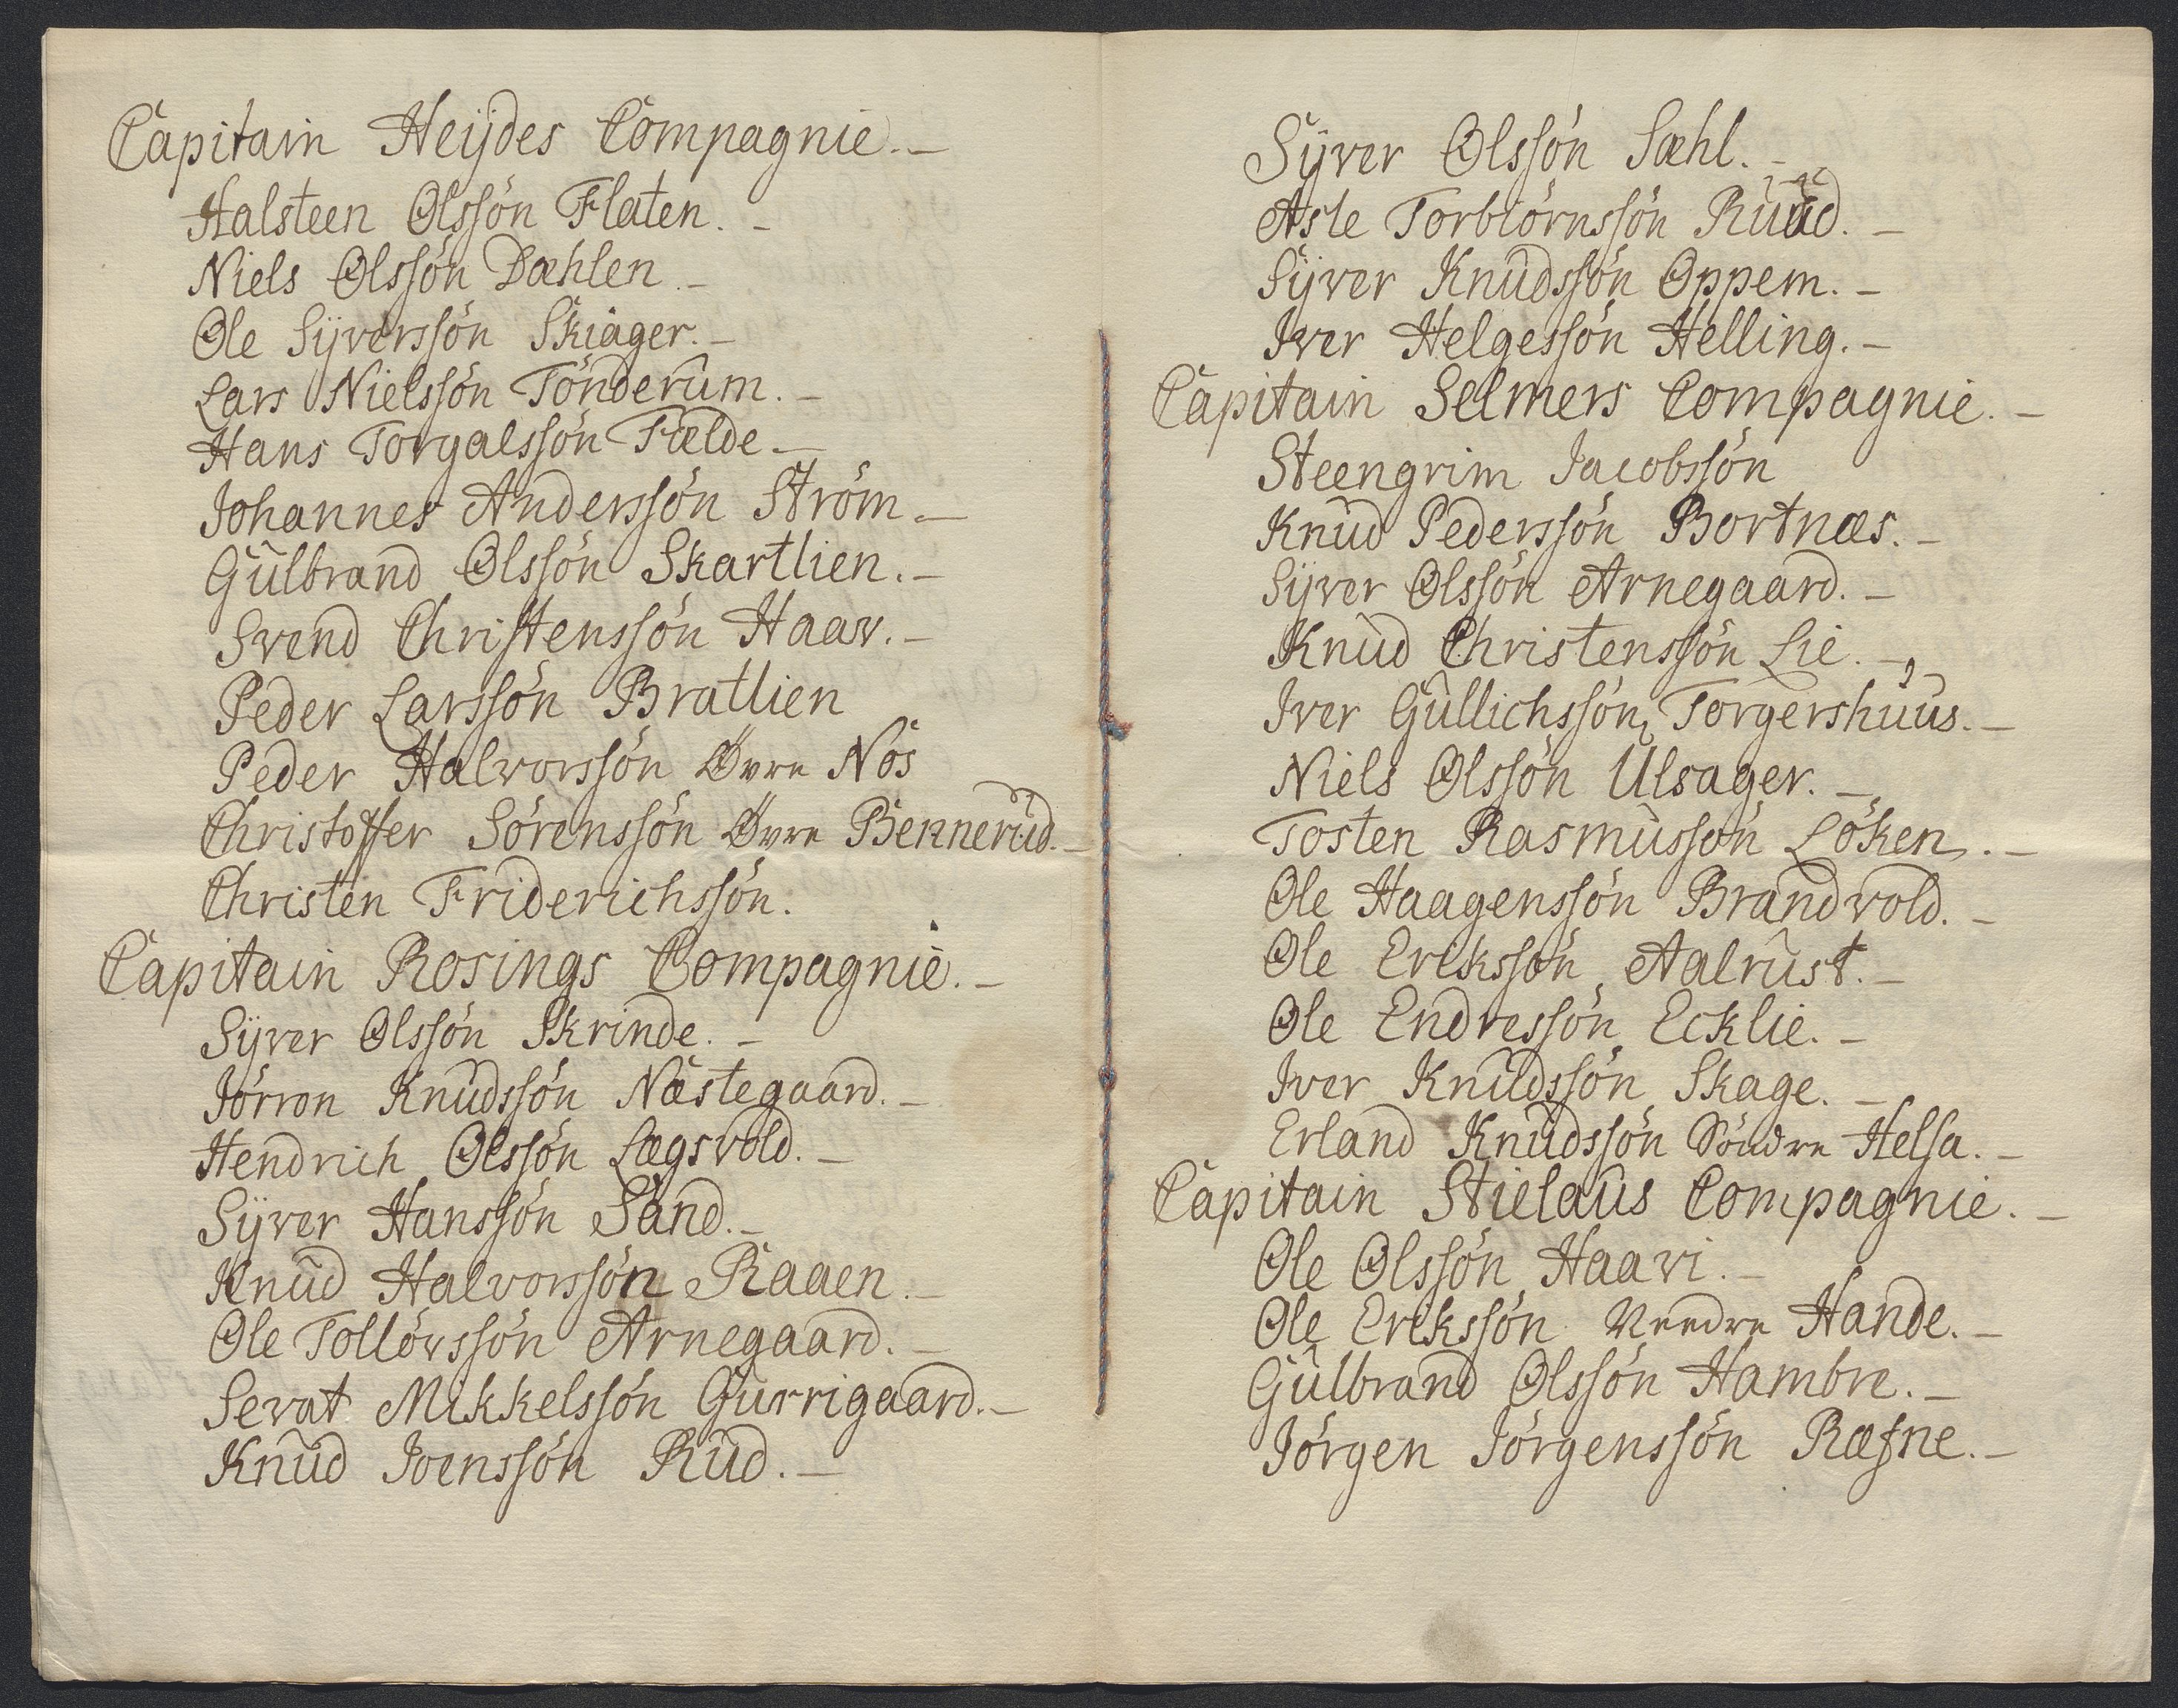 Capitain Heijdes Compagnie. -
Halsteen Olssön Flaten. -
Niels Olssön Dæhlen. -
Ole Sÿverssön Skiager. -
Lars Nielssön Tönderum. -
Hans Torgalssön Fælde -
Johannes Anderssön Ström. -
Gulbrand Olssön Skartlien. -
Svend Christenssön Haav. -
Peder Larssön Bratlien
Peder Halvorssön Øvre Nös
Christoffer Sörenssön Øvre Bennerud. -
Christen Friderichssön.
Capitain Rosings Compagnie. -
Sÿver Olssön Skrinde. -
Jörron Knudssön Næstegaard. -
Hendrich Olssön Lægsvold. -
Sÿver Hanssön Sand. -
Knud Halvorssön Raaen. -
Ole Tollövssön Arnegaard. -
Sevat Mikkelssön Gurrigaard. -
Knud Joenssön Rud. -
Sÿver Olssön Sæhl. -
Asle Torbiörnssön Ruud. -
Sÿver Knudssön Oppem. -
Iver Helgessön Helling. -
Capitain Selmers Compagnie. -
Steengrim Jacobssön
Knud Pederssön Bortnæs. -
Sÿver Olssön Arnegaard. -
Knud Christenssön Lie. -
Iver Gullichssön Torgershuus. -
Niels Olssön Ulsager. -
Tosten Rasmussön Löken. -
Ole Haagenssön Brandvold. -
Ole Erikssön Aalrust. -
Ole Endressön Ecklie. -
Iver Knudssön Skage. -
Erland Knudssön Söndre Helsa. -
Capitain Stielaus Compagnie. -
Ole Olssön Haavi. -
Ole Erikssön Needre Hande. -
Gulbrand Olssön Hambre. -
Jörgen Jörgenssön Ræfne. -